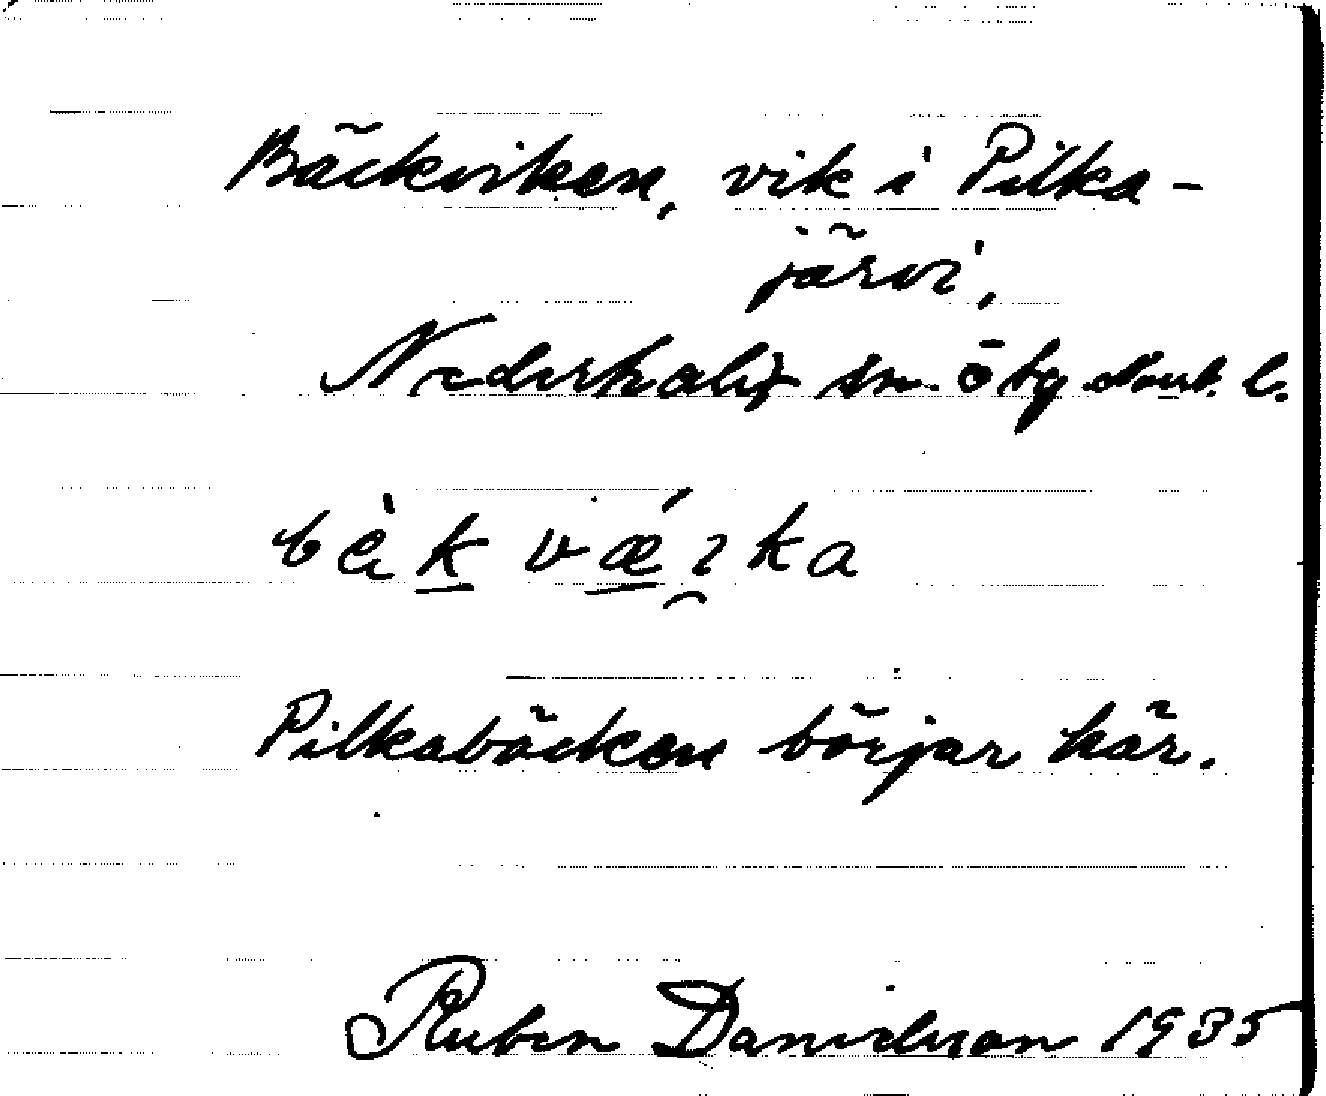 Bäckviken, vik i Pilka-
järvi,
Nederkalix sn. öbg Norrb. l.
bὲk væ̀ɪka
Pilkabäcken börjar här.
Ruben Danielsson 1935